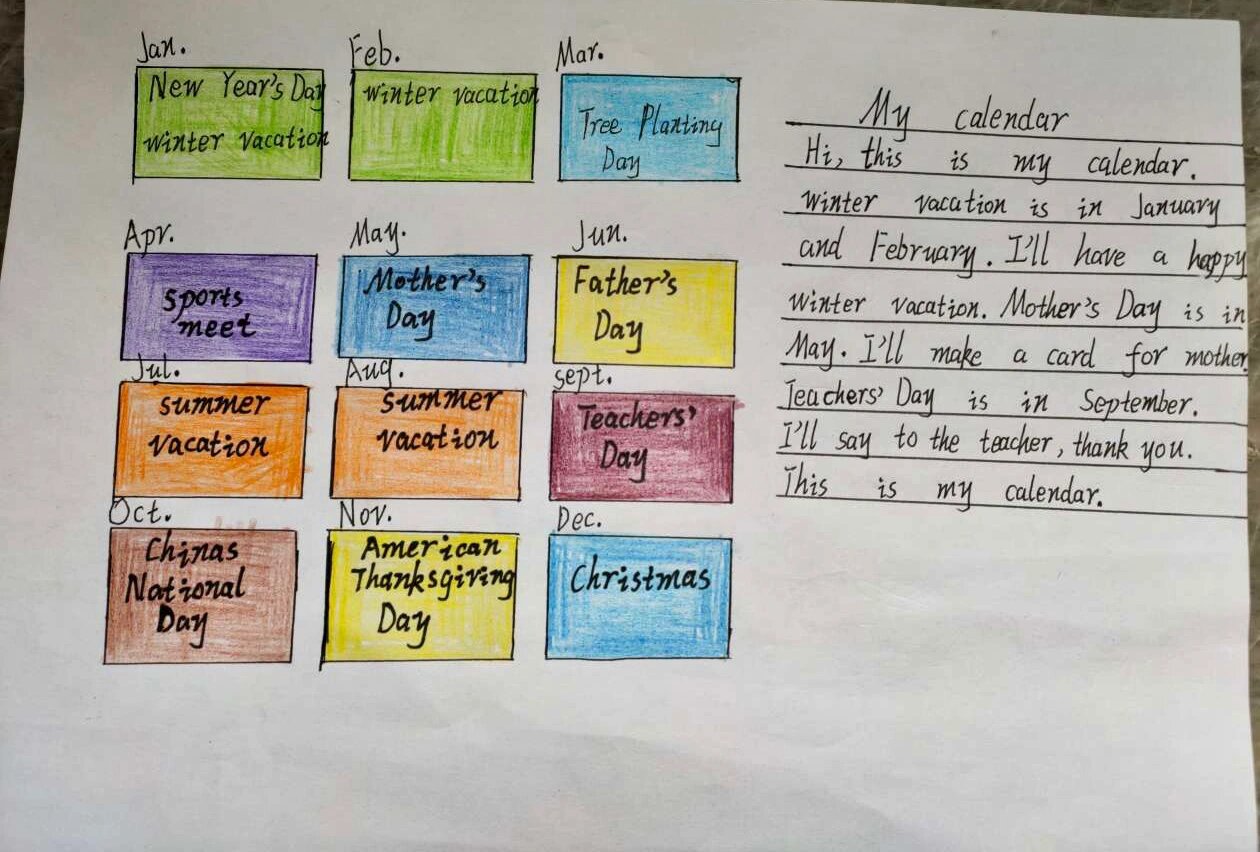 Jan.
New Year's Day
winter vacation
Feb.
winter vacation
Mar.
Tree Planting
Day
Apr.
sports
meet
May.
Mother's
Day
Jun.
Father's
Day
Jul.
summer
vacation
Aug.
summer
vacation
sept.
Teachers'
Day
Oct.
Chinas
National
Day
Nov.
American
Thanksgiving
Day
Dec.
Christmas
My calendar
Hi, this is my calendar.
winter vacation is in January
and February. I'll have a happy
winter vacation. Mother's Day is in
May. I'll make a card for mother.
Teachers' Day is in September.
I'll say to the teacher, thank you.
This is my calendar.